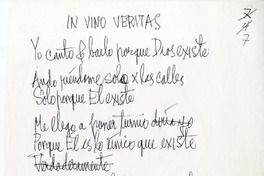 IN VINO VERITAS
7
4
7
Yo canto & bailo porque Dios existe
Ando riéndome solo x las calles
Solo porque El existe
Me llego a poner
Porque El es lo único que existe
Verdaderamente